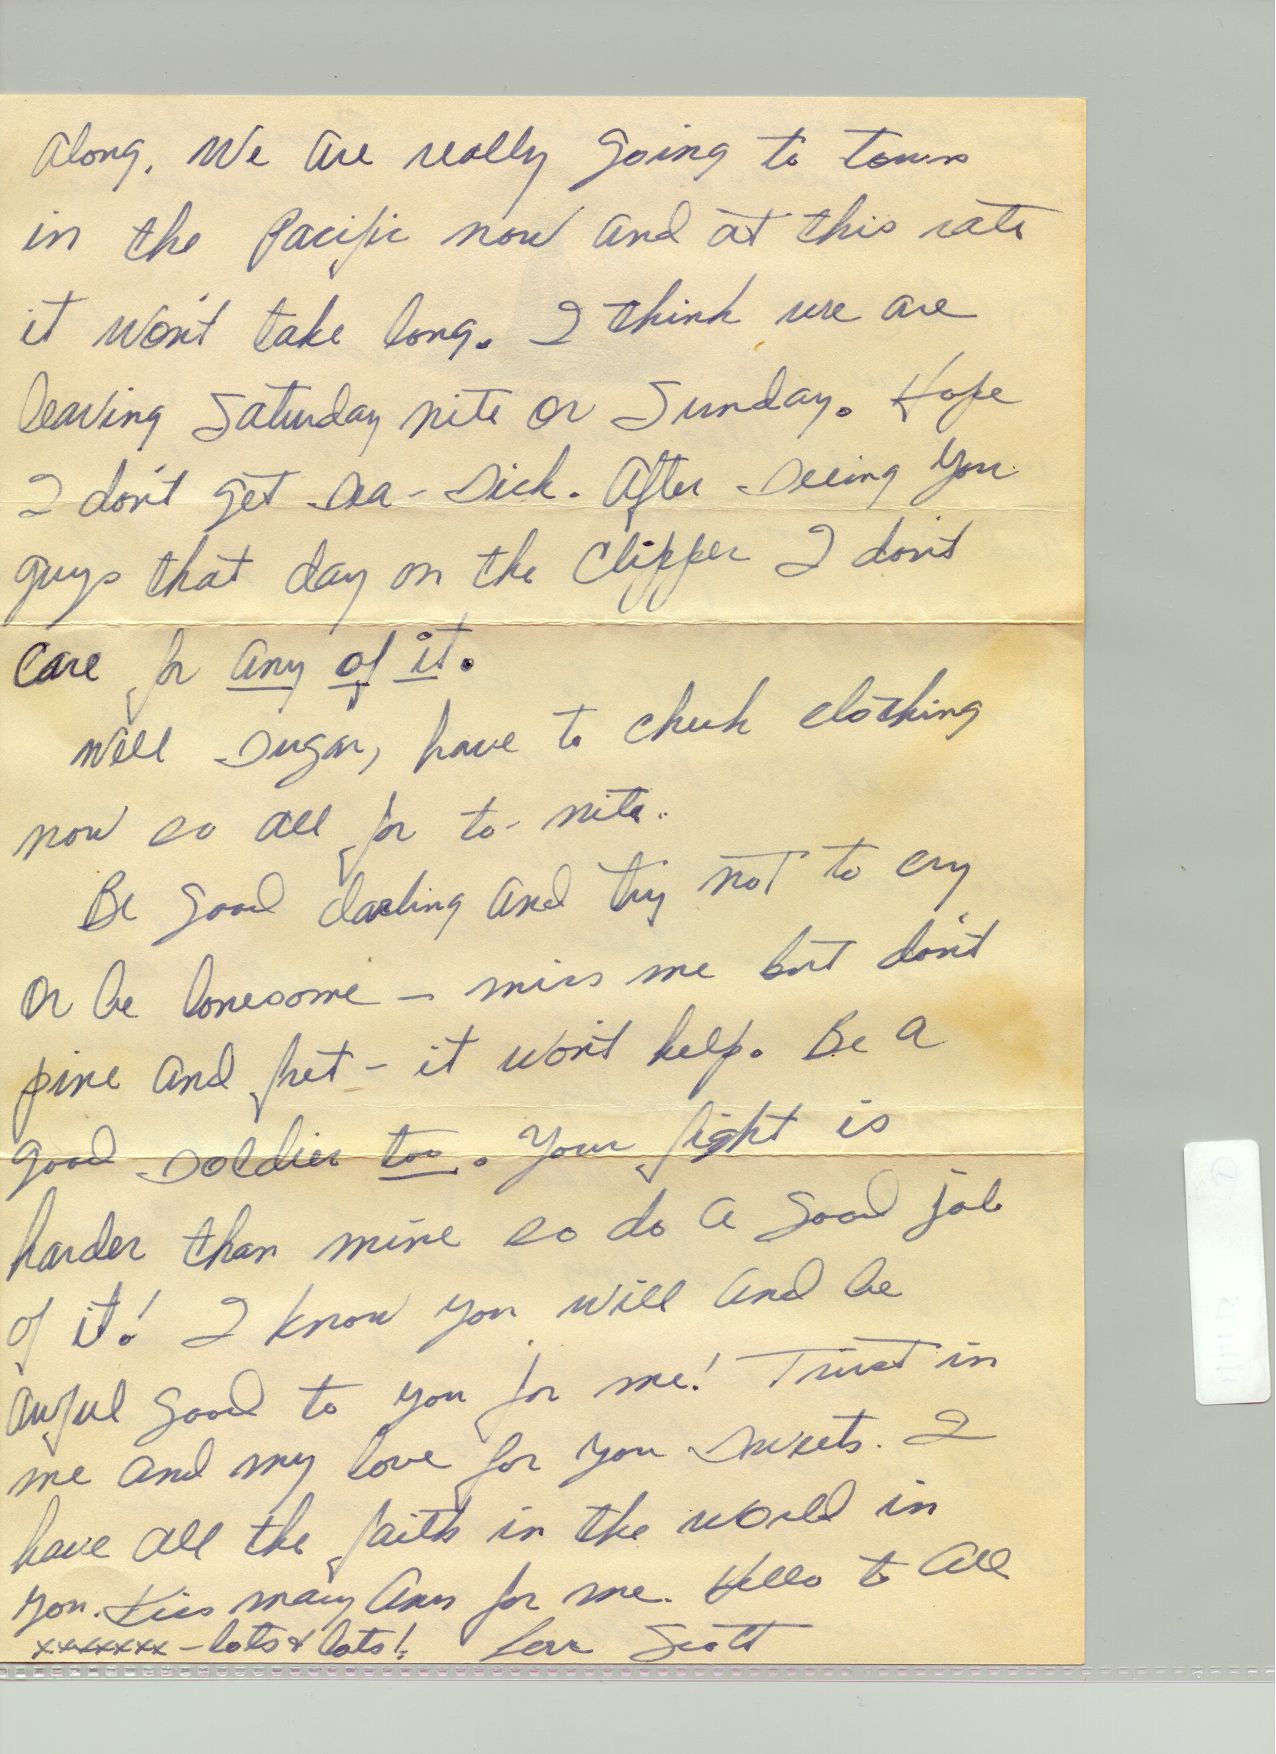 along. We are really going to town
in the Pacific now and at this rate
it won't take long. I think we are
leaving Saturday nite or Sunday. Hope
I don't get sea-sick. After seeing you
guys that day on the Clipper I don't
care for any of it.
Well Sugar, have to check clothing
now so all for to-nite.
Be good darling and try not to cry
or be lonesome - miss me but don't
pine and fret - it won't help. Be a
good soldier too. Your fight is
harder than mine so do a good job
of it! I know you will and be
awful good to you for me! Trust in
me and my love for you Sweets. I
have all the faith in the world in
you. Kiss Mary Ann for me. Hello to all
xxxxxxx - lots & lots! Love Scott